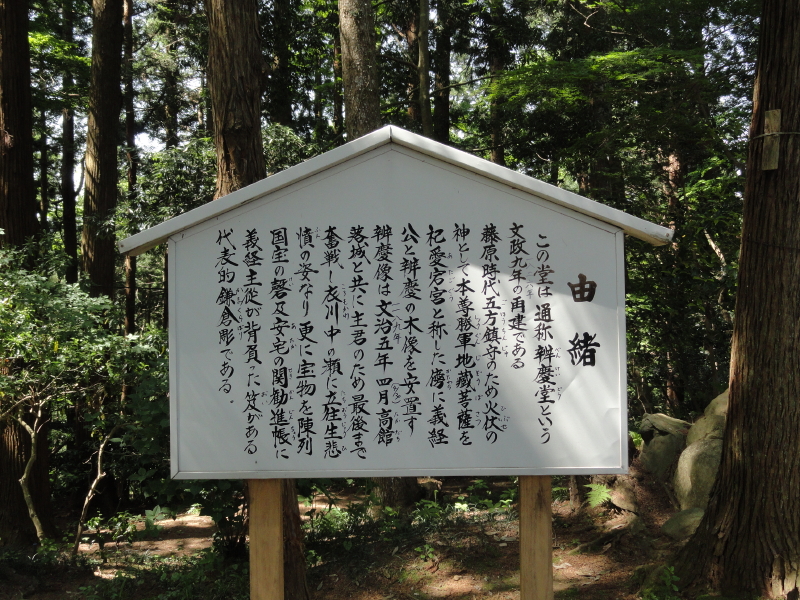 由緒
この堂は通称辨慶堂という
文政九年の再建である
藤原時代五方鎮守のため火伏の
神として本尊勝軍地蔵菩薩を
祀愛宕宮と称した傍に義経
公と辨慶の木像を安置す
辨慶像は文治五年四月高館
落城と共に主君のため最後まで
奮戦し衣川中の瀬に立往生悲
憤の姿なり更に宝物を陳列
国宝の磬及安宅の関勧進帳に
義経主従が背負った笈がある。
代表的鎌倉彫である。